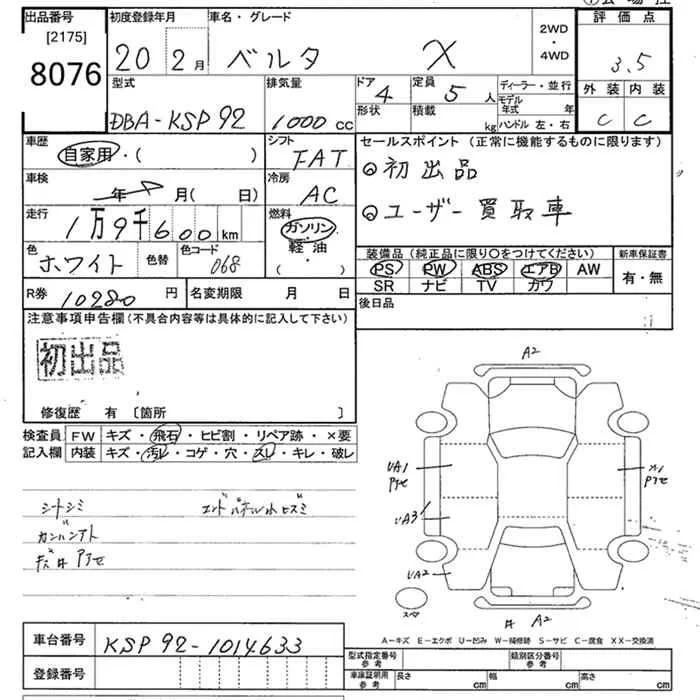 出品番号
[2175]
8076
初度登録年月
20 2月
車名・グレード
ベルタ X
2WD
・
4WD
評価点
3.5
外装 内装
C C
型式
DBA-KSP92
排気量
1000 cc
ドア
4
形状
定員
5 人
積載
kg
ディーラー・並行
モデル年式 年
ハンドル 左・右
車歴
自家用・( )
シフト
FAT
車検
年 月( 日)
冷房
AC
走行
1万9千600km
燃料
ガソリン
軽・油
( )
色
ホワイト
色替
色コード
068
セールスポイント (正常に機能するものに限ります)
◎初出品
◎ユーザー買取車
装備品(純正品に限り〇をつけてください)
PS PW ABS エアB AW
SR ナビ TV カワ
新車保証書
有・無
R券 10280 円
名変期限 月 日
後日品
注意事項申告欄(不具合内容等は具体的に記入して下さい)
初出品
修復歴 有 〔箇所 〕
検査員
記入欄
FW キズ・飛石・ヒビ割・リペア跡・×要
内装 キズ・汚レ・コゲ・穴・スレ・キレ・破レ
シートシミ
カンバンアト
キズ# アセ
エンドパネル小ヒズミ
A2
UA1
アセ
X1
アセ
UA3
UA2
スペア
# A2
A-キズ E-エクボ U-凹み W-補修跡 S-サビ C-腐食 XX-交換済
車台番号
KSP92-1014633
登録番号
型式指定番号
参考
類別区分番号
参考
車庫証明用
参考
長さ cm
幅 cm
高さ cm